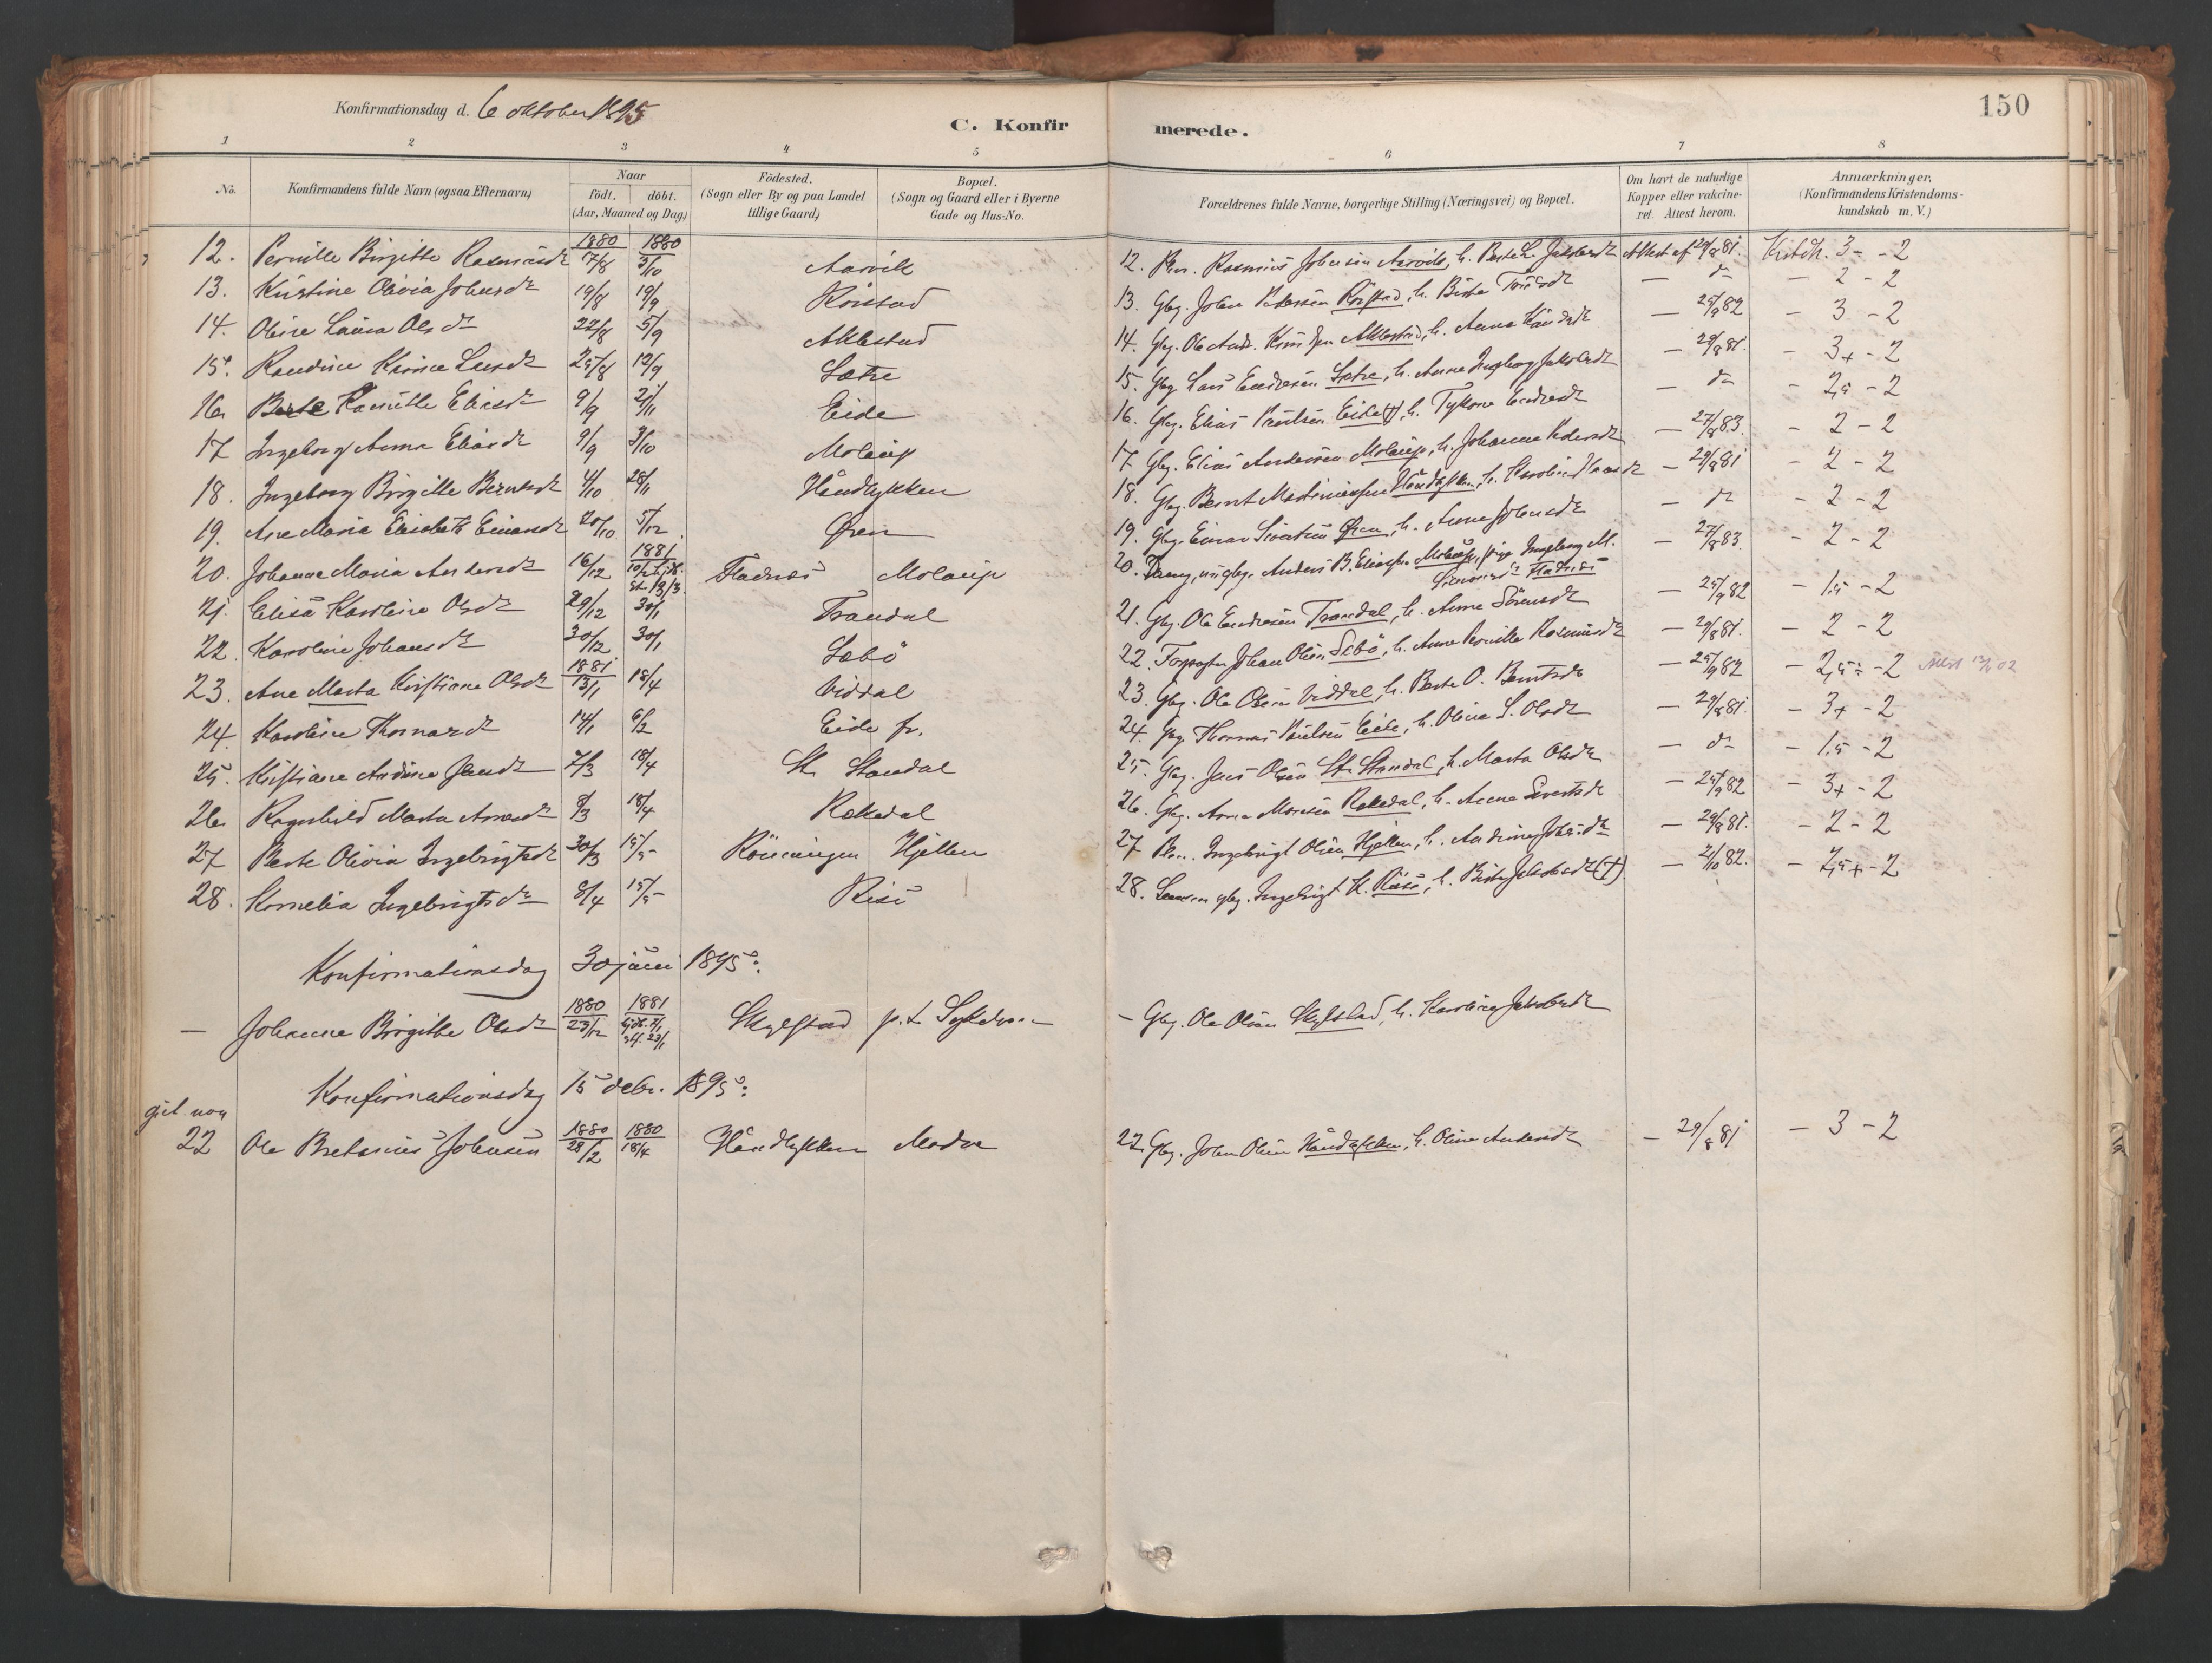 Konfirmationsdag d. 6 oktober 1895
C. Konfirmerede.
150
1 2 3 4 5 6 7 8
No. Konfirmandens fulde Navn (ogsaa Efternavn) Naar födt. döbt. (Aar, Maaned og Dag) Födested. (Sogn eller By og paa Landet tillige Gaard) Bopæl. (Sogn og Gaard eller i Byerne Gade og Hus-No. Forældrenes fulde Navne, borgerlige Stilling (Næringsvei) og Bopæl. Om havt de naturlige Kopper eller vakcineret. Attest herom. Anmærkninger. (Konfirmandens Kristendomskundskab m. V.)
12. Pernille Birgitte Rasmusdr 1880 17/8 1880 3/10 Aarvik 12. Rasmus Johnsen Aarvik, h. Berte L. Jakobsdr Attest af 29/8 81. Kristdk. 3- - 2
13. Kristine Olivia Johnsdr 19/8 19/9 Röistad 13. Gbg. John Pedersen Röistad, h. Birte — dr — 2 - 2
14. Oline Laura Olsdr 22/8 5/9 Aklestad 14. Gbg. Ole Andr. Knudsen Aklestad, h. Anna Knudsdr — 25/9 82 - 3 - 2
15. Randine Karine Larsdr 25/8 12/9 Sætre 15. Gbg. Lars Endresen Sætre, h. Anne Ingeborg Jakobsdr — 29/8 81. - 3+ - 2
16. Berte Pernille Eliasdr 9/9 21/11 Eide 16. Gbg. Elias Paulsen Eide (†), h. Endresdr — dr - 2,5 - 2
17 Ingeborg Anna Eliasdr 9/9 3/10 Molaup 17. Gbg. Elias Andersen Molaup, h. Johanne Pedersdr — 27/8 83. - 2 - 2
18. Ingeborg Birgitte Berntsdr 4/10 28/11 Håndlykken 18. Gbg. Bernt Martinussen Håndlykken, h. Karoline — 29/8 81 - 2 - 2
19. Ane Maria Elisabeth Einarsdr 20/10 5/12 Øren 19. Gbg. Einar Sivertsen Øren, h. Anne Johnsdr — dr - 2 - 2
20. Johanne Maria Andersdr 16/12 1881 Hjdt. 13/3. Fladnes Molaup 20. ungkr. Anders B. Eliassen Molaup, pige Ingeborg M. Fladnes — 27/8 83. - 2 - 2
21. Elisa Karoline Olsdr 29/12 30/1 Trandal 21. Gbg. Ole Endresen Trandal, h. Anne Sörensdr — 25/9 82 - 1,5 - 2
22. Karoline Johansdr 30/12 30/1 Sæbö 22. Johan Olsen Sæbö, h. Anne Pernille Rasmusdr — 29/8 81. - 2 - 2
23. Ane Marta Kristiane Olsdr 1881 13/1 18/4 Viddal 23. Gbg. Ole Olsen Viddal, h. Berte O. Berntsdr — 25/9 82 - 2,5 - 2
24. Karoline Thomasdr 14/1 6/2 Eide fr. 24. Gbg. Thomas Paulsen Eide, h. Oline S. Olsdr — 29/8 81. - 3+ - 2
25. Kristiane Andrine Jensdr 7/3 18/4 St. Standal 25. Gbg. Jens Olsen St. Standal, h. Marta Olsdr — dr - 1,5 - 2
26. Ragnhild Marta Arnesdr 8/3 18/4 Rekedal 26. Gbg. Arne Rekedal, h. Anne Sivertsdr — 25/9 82 - 3+ - 2
27 Berte Olivia Ingebrigtsdr 30/3 15/5 Rönningen Hjellen 27 Ingebrigt Olsen Hjellen, h. Andrine — 29/8 81. - 2 - 2
28. Kornelia Ingebrigtsdr 8/4 15/5 Rise 28. gbg. Ingebrigt K. Riise, h. Birte Jakobsdr (†) — 2/10 82. - 2,5+ - 2
Konfirmationsdag 30 juni 1895:
— Johanne Birgitte Olsdr 1880 23/12 1881 hjdt. 2/1 stf. 23/1 Skylstad p.t. - Gbg. Ole Olsen Skylstad, h. Karoline Jakobsdr
Konfirmationsdag 15 debr. 1895:
gut nou
22 Ole Bretanius Johnsen 1880 28/2 1880 18/4 Håndlykken Modra 22. Gbg. John Olsen Håndlykken, h. Oline Andersdr — 29/8 81 - 3 - 2